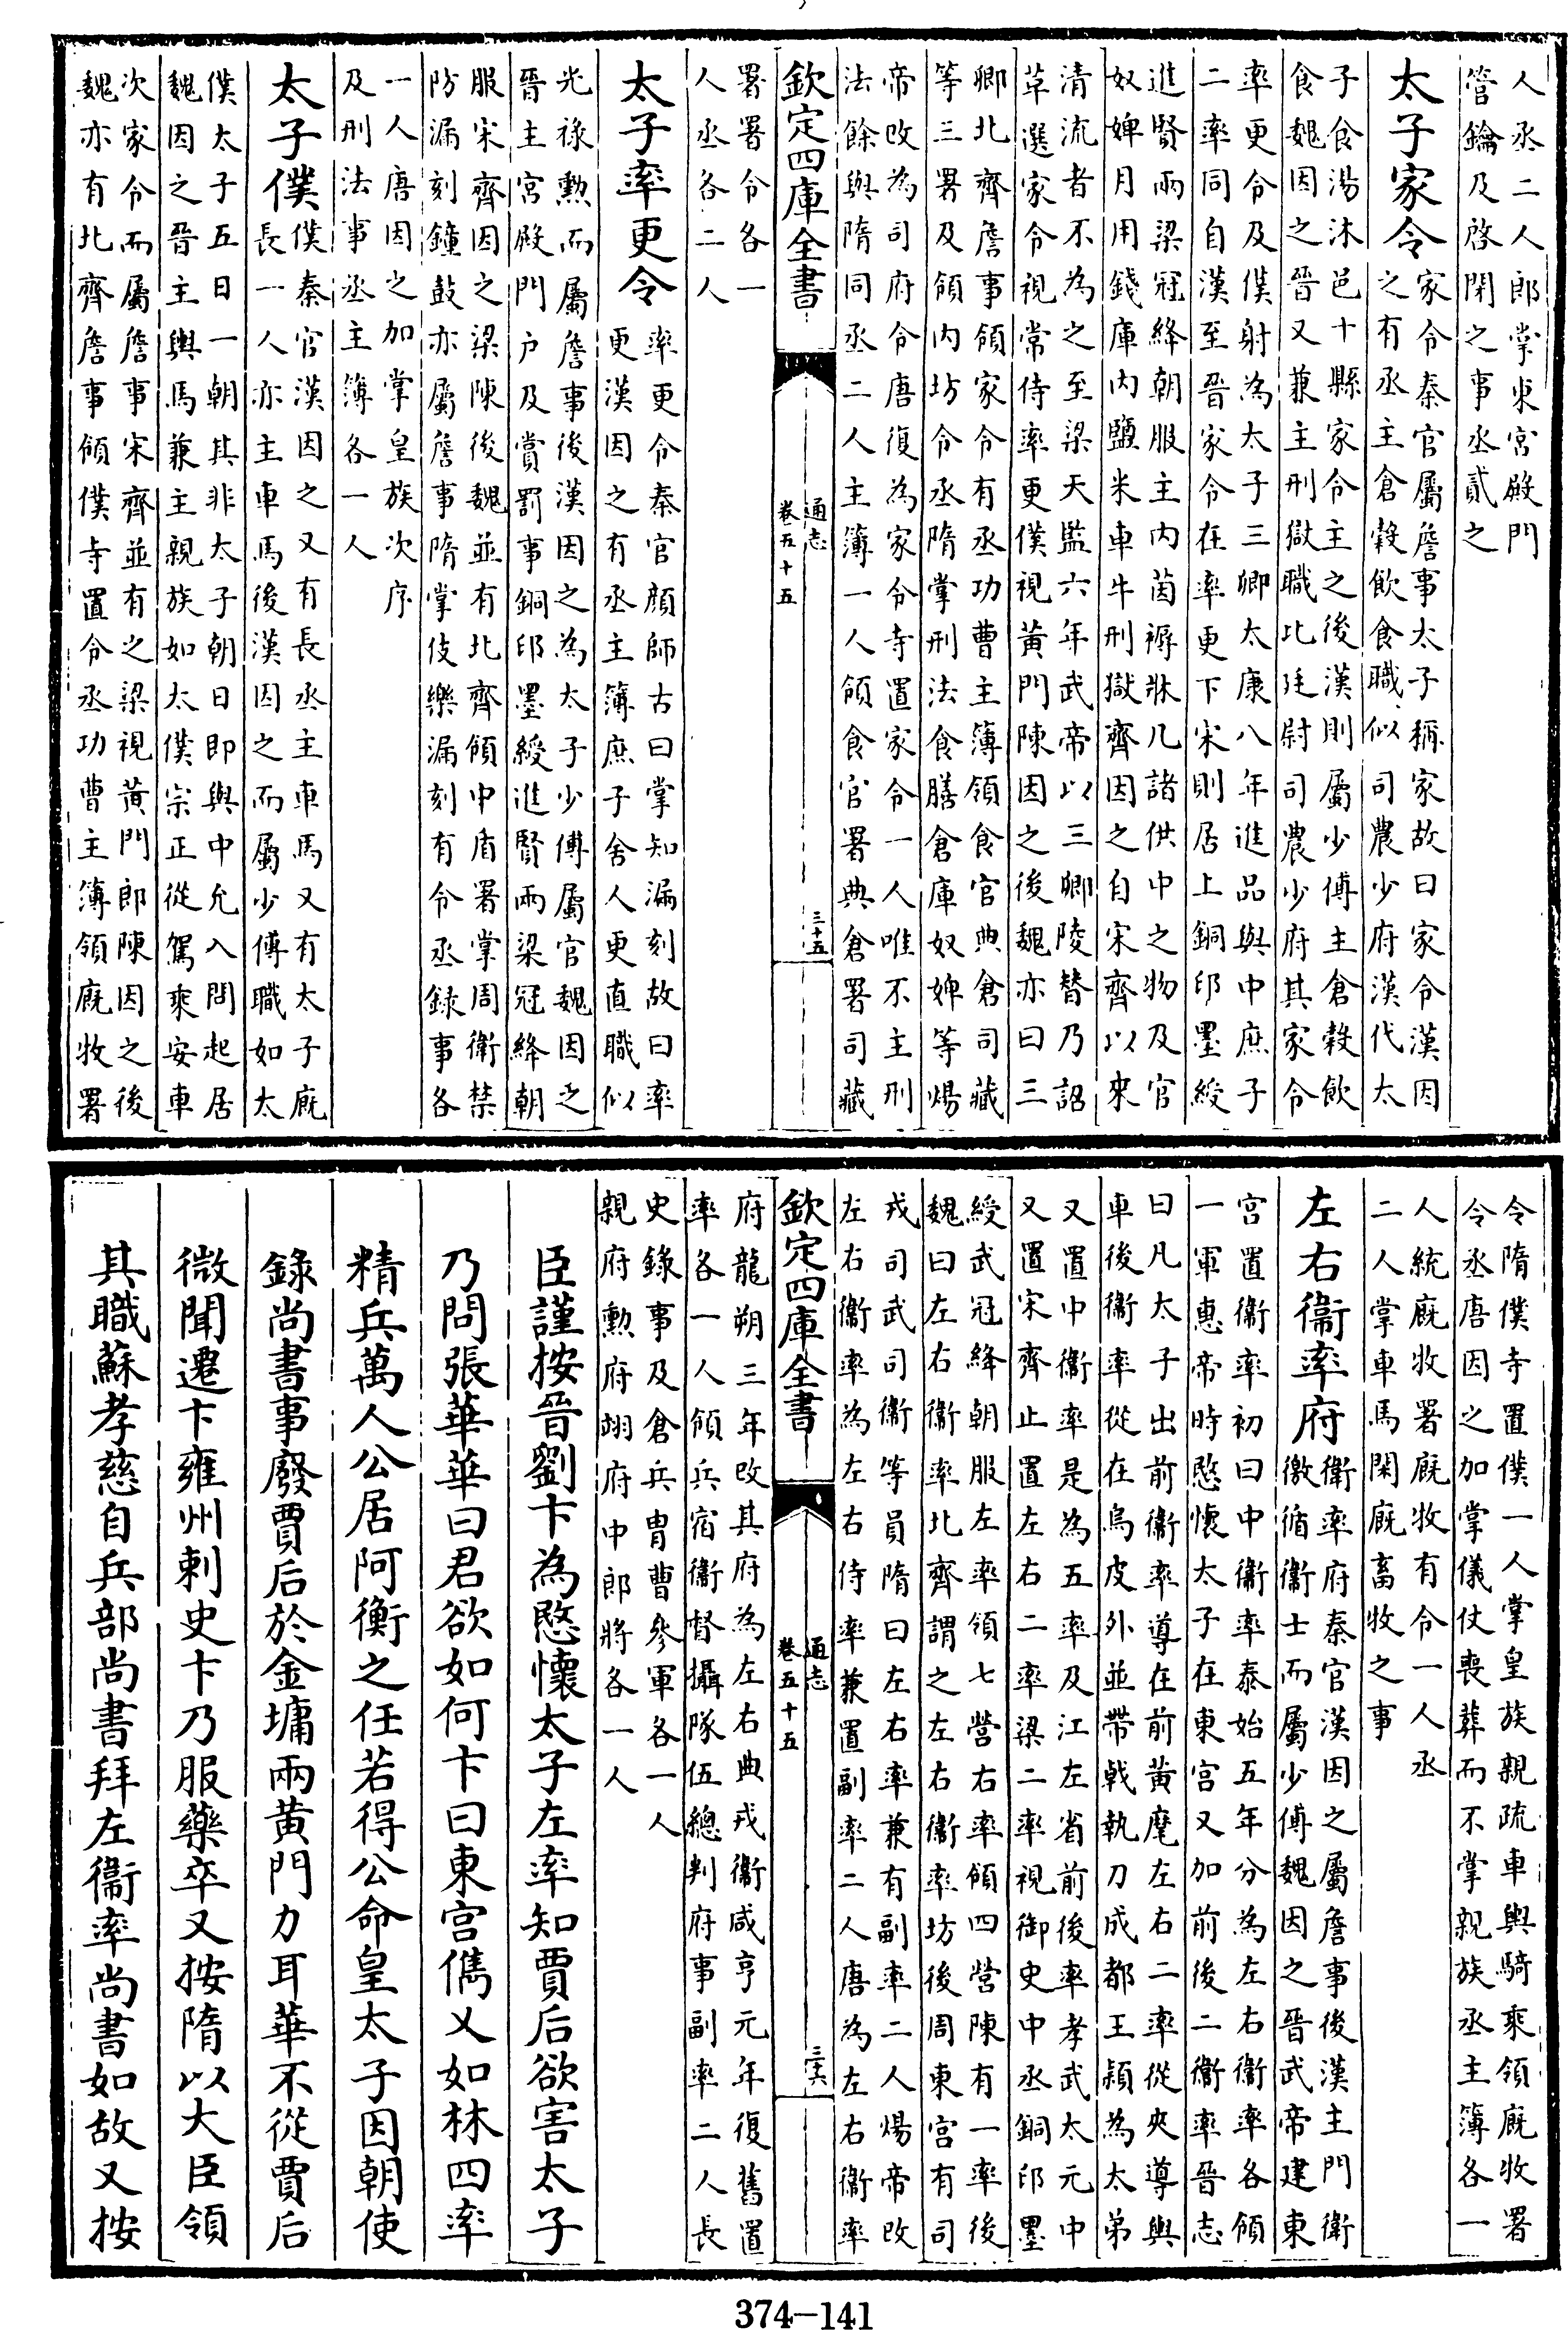 人丞二人郎掌東宮殿門
管鑰及啓閉之事丞貳之
太子家令
家令秦官屬詹事太子稱家故曰家令漢因
之有丞主倉穀飲食職似司農少府漢代太
子食湯沐邑十縣家令主之後漢則屬少傅主倉穀飲
食魏因之晉又兼主刑獄職比廷尉司農少府其家令
率更令及僕射為太子三卿太康八年進品與中庶子
二率同自漢至晉家令在率更下宋則居上銅印墨綬
進賢兩梁冠絳朝服主内茵褥牀几諸供中之物及官
奴婢月用錢庫内鹽米車牛刑獄齊因之自宋齊以來
清流者不為之至梁天監六年武帝以三卿陵替乃詔
草選家令視常侍率更僕視黃門陳因之後魏亦曰三
卿北齊詹事領家令有丞功曹主簿領食官典倉司藏
等三署及領内坊令丞隋掌刑法食膳倉庫奴婢等煬
帝改為司府令唐復為家令寺置家令一人唯不主刑
法餘與隋同丞二人主簿一人領食官署典倉署司藏
欽定四庫全書
通志
卷五十五
三十五
署署令各一
人丞各二人
太子率更令
率更令秦官顏師古曰掌知漏刻故曰率
更漢因之有丞主簿庶子舍人更直職似
光祿勲而屬詹事後漢因之為太子少傅屬官魏因之
晉主宮殿門户及賞罰事銅印墨綬進賢兩梁冠絳朝
服宋齊因之梁陳後魏並有北齊領中盾署掌周衛禁
防漏刻鐘鼓亦屬詹事隋掌伎樂漏刻有令丞錄事各
一人唐因之加掌皇族次序
及刑法事丞主簿各一人
太子僕
僕秦官漢因之又有長丞主車馬又有太子廐
長一人亦主車馬後漢因之而屬少傅職如太
僕太子五日一朝其非太子朝日即與中允入問起居
魏因之晉主輿馬兼主親族如太僕宗正從駕乘安車
次家令而屬詹事宋齊並有之梁視黃門郎陳因之後
魏亦有北齊詹事領僕寺置令丞功曹主簿領廐牧署
令隋僕寺置僕一人掌皇族親疏車輿騎乘領廐牧署
令丞唐因之加掌儀仗喪葬而不掌親族丞主簿各一
人統廐牧署廐牧有令一人丞
二人掌車馬閑廐畜牧之事
左右衞率府
衛率府秦官漢因之屬詹事後漢主門衛
徼循衞士而屬少傅魏因之晉武帝建東
宮置衞率初曰中衞率泰始五年分為左右衞率各領
一軍惠帝時愍懷太子在東宮又加前後二衞率晉志
曰凡太子出前衞率導在前黃麾左右二率從夾導與
車後衞率從在烏皮外並帶戟執刀成都王穎為太弟
又置中衞率是為五率及江左省前後率孝武太元中
又置宋齊止置左右二率梁二率視御史中丞銅印墨
綬武冠絳朝服左率領七營右率領四營陳有一率後
魏曰左右衞率北齊謂之左右衞率坊後周東宮有司
戎司武司衞等員隋曰左右率兼有副率二人煬帝改
左右衞率為左右侍率兼置副率二人唐為左右衞率
欽定四庫全書
通志
卷五十五
三十六
府龍朔三年改其府為左右典戎衞咸亨元年復舊置
率各一人領兵宿衞督攝隊伍總判府事副率二人長
史錄事及倉兵胄曹參軍各一人
親府勲府翊府中郎將各一人
臣謹按晉劉卞為愍懷太子左率知賈后欲害太子
乃問張華華曰君欲如何卞曰東宮儁乂如林四率
精兵萬人公居阿衡之任若得公命皇太子因朝使
錄尚書事廢賈后於金墉兩黃門力耳華不從賈后
微聞遷卞雍州刺史卞乃服藥卒又按隋以大臣領
其職蘇孝慈自兵部尚書拜左衞率尚書如故又按
374-141